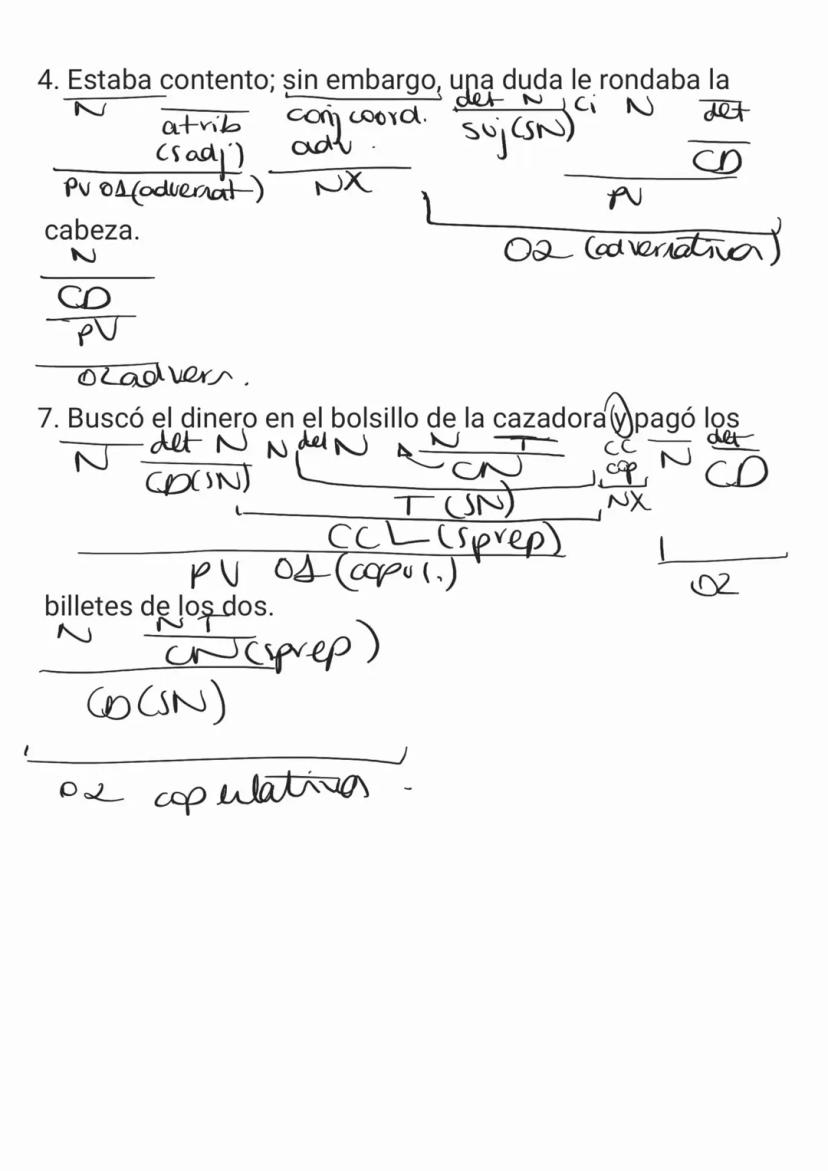 4. Estaba contento; sin embargo, una duda le rondaba la
N atrib conj coord. det N ci N det
(s adj) adv. suj (SN) CD
PV O1 (adversat.) NX PV
cabeza. O2 (adversativa)
N
CD
PV
O2 advers.
7. Buscó el dinero en el bolsillo de la cazadora y pagó los
N det N N det N N T CC N det
CD (SN) CN cop CD
T (SN) NX
CCL (sprep)
PV O1 (copul.) O2
billetes de los dos.
N N T
CN (sprep)
CD (SN)
O2 copulativa.